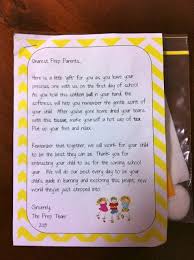 Dearest Prep Parents,
Here is a little 'gift' for you as you leave your
precious one with us on the first day of school.
As you hold this cotton ball in your hand, the
softness will help you remember the gentle spirit of your
child. After you've gone home and dried your tears,
with this tissue, make yourself a hot cup of tea.
Put up your feet and relax.
Remember that together, we will work for your child
to be the best they can be. Thank you for
entrusting your child to us for the coming school
year. We will do our very best every day to be your
child's guide in learning and exploring this new
world they've just stepped into.
Sincerely,
The Prep Team